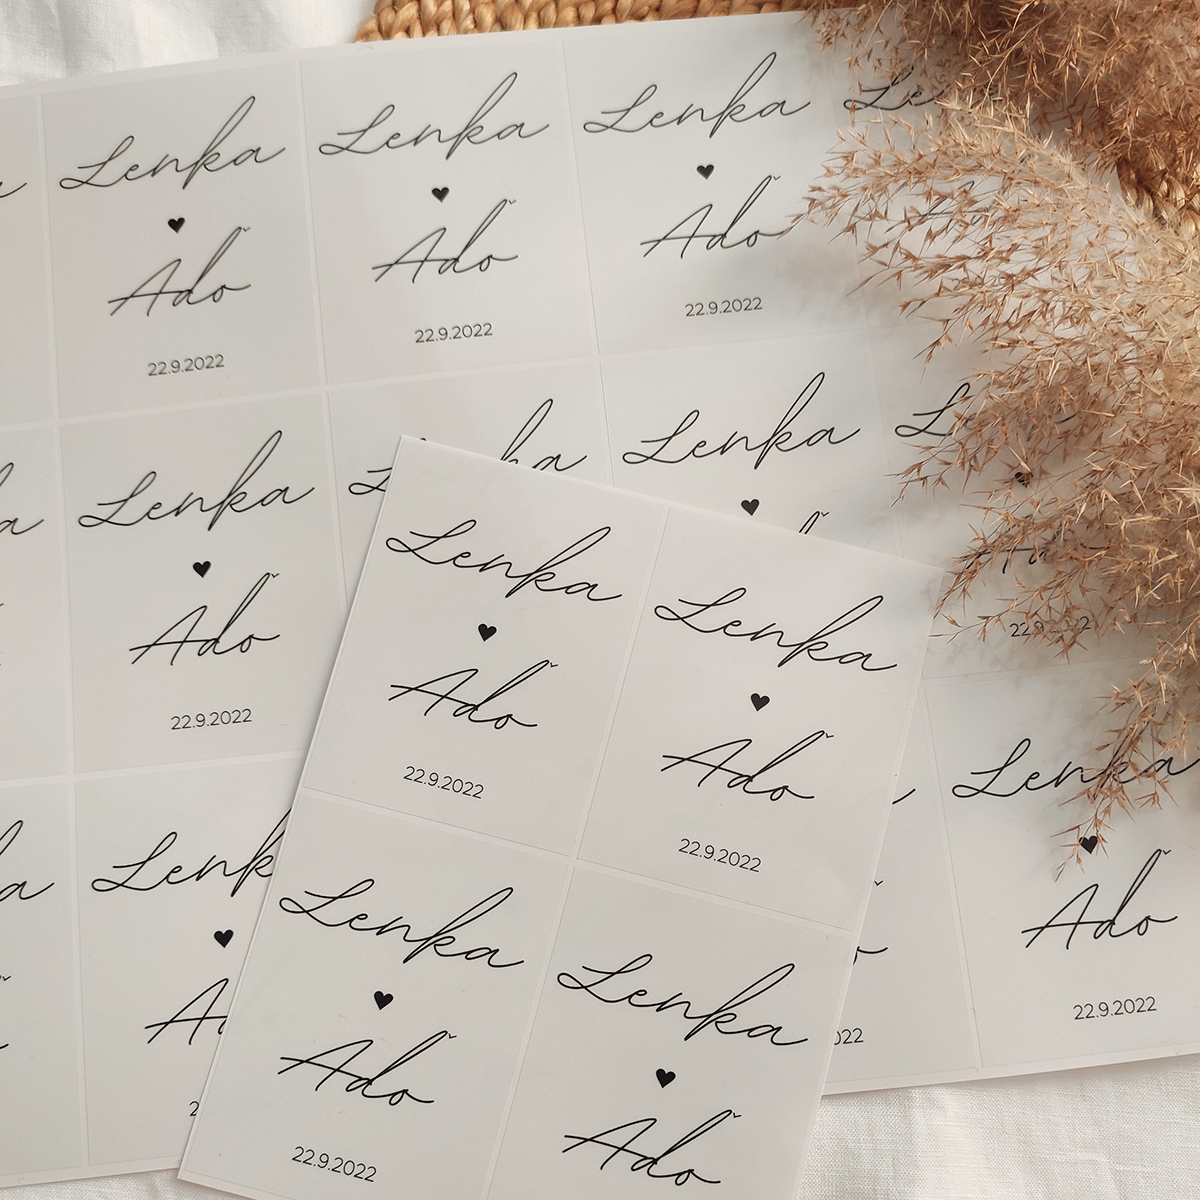 Lenka
♥
Aďo
22.9.2022
Lenka
♥
Aďo
22.9.2022
Lenka
♥
Aďo
22.9.2022
Lenka
♥
Aďo
22.9.2022
Lenka
♥
Lenka
♥
Aďo
22.9.2022
Lenka
♥
Aďo
22.9.2022
Lenka
♥
Aďo
22.9.2022
Lenka
♥
Aďo
22.9.2022
Lenka
♥
Aďo